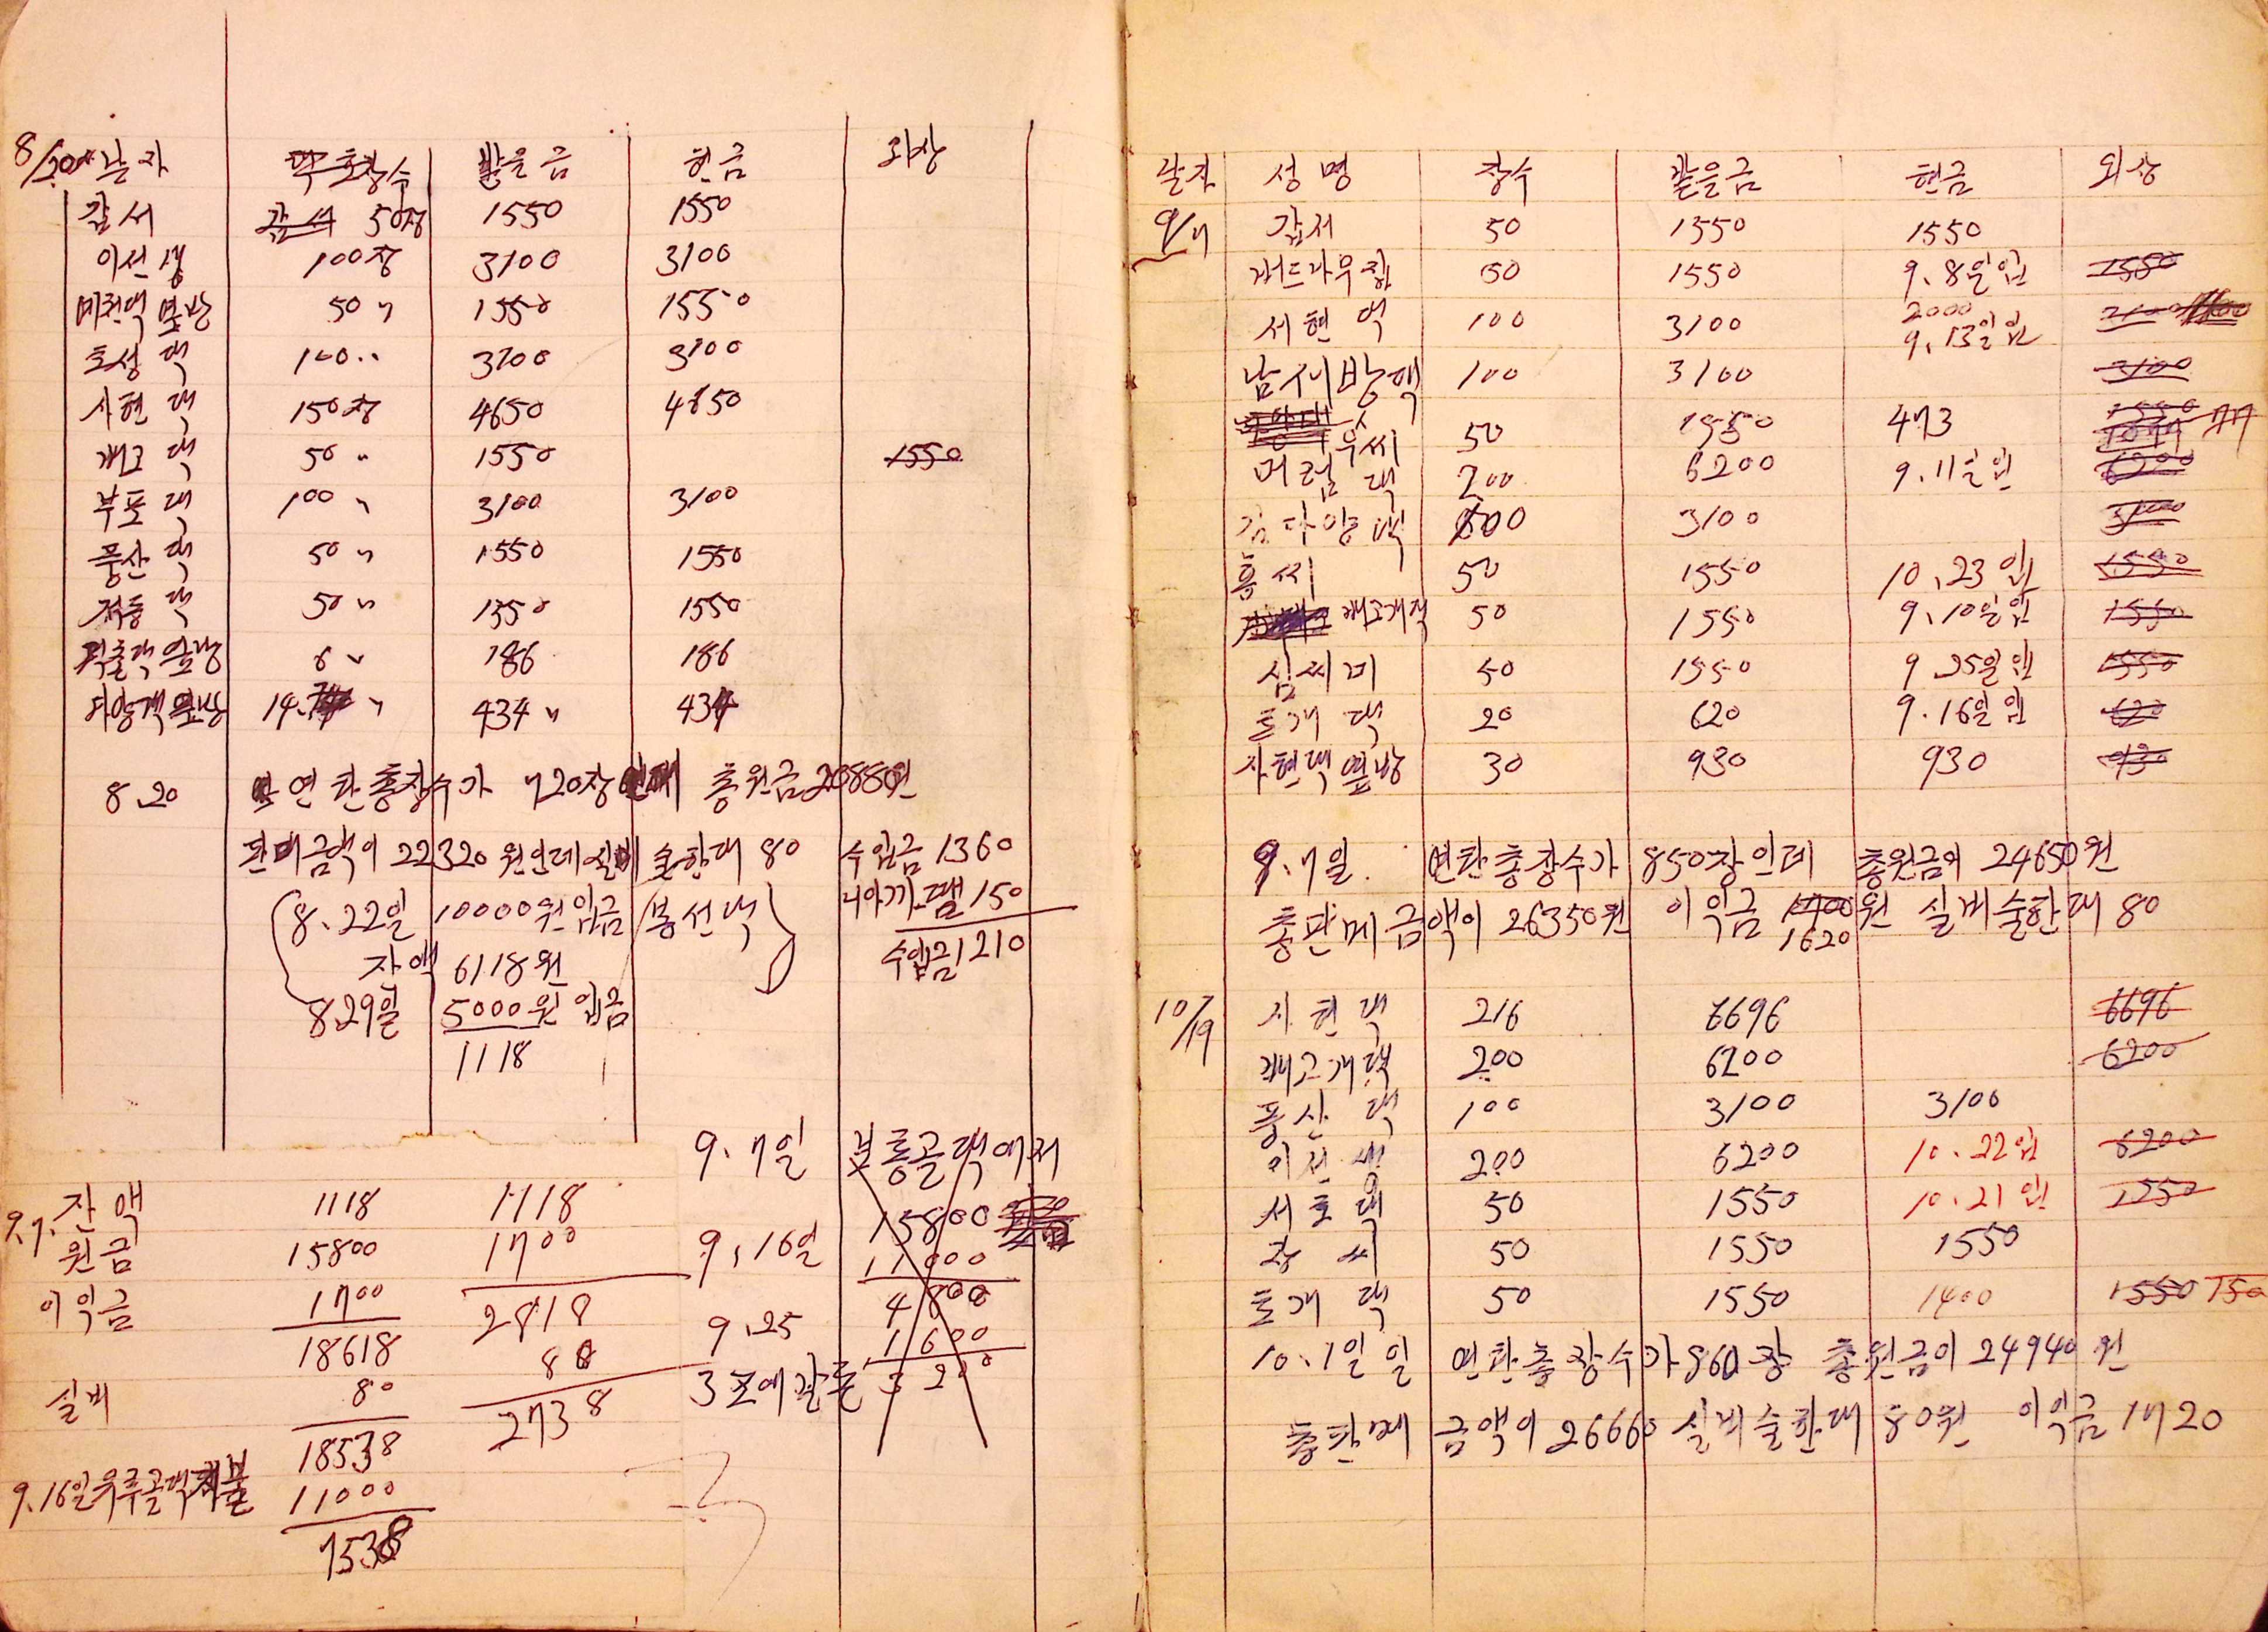 8/20 날자 장수 받을금 현금 외상
갑서 50장 1550 1550
이선생 100장 3100 3100
미천댁 옆방 50〃 1550 1550
호성댁 100〃 3100 3100
사현댁 150장 4650 4650
재고댁 50〃 1550 1550
부포댁 100〃 3100 3100
풍산댁 50〃 1550 1550
저동댁 50〃 1550 1550
옆방 6〃 186 186
옆방 14〃 434〃 434
8.20 연탄총장수가 720장인데 총원금20880원
판매금액이 22320원인데 실비 술한대 80 수입금 1360
8.22일 10000원입금 봉선댁 150
수입금1210
잔액 6118원
8.29일 5000원 입금
1118
9.7. 잔액 1118 1118
원금 15800 1700
이익금 1700 2818
18618 80
실비 80 2738
18538
9.16일 우루골댁 지불 11000
7538
9.7일 보통골댁에서
15800
9.16일 11000
4800
9.25 1600
3200
날자 성명 장수 받을금 현금 외상
9/7 갑서 50 1550 1550
50 1550 9.8일입 1550
서현댁 100 3100 2000 9.13일입 2100
남서방댁 100 3100 3100
우씨 50 1550 473 1550 77
머검댁 200 6200 9.11일입 6200
김다양댁 100 3100 3100
홍씨 50 1550 10.23입 1550
재고개댁 50 1550 9.10일입 1550
심씨미 50 1550 9.25일입 1550
돌개댁 20 620 9.16일입 620
사현댁 옆방 30 930 930 930
9.7일. 연탄총장수가 850장인데 총원금이 24650원
총판매금액이 26350원 이익금 1700원 실비술한대 80
1620
10/19 사현댁 216 6696 6696
재고개댁 200 6200 6200
풍산댁 100 3100 3100
이선생 200 6200 10.22입 6200
서호댁 50 1550 10.21입 1550
장씨 50 1550 1550
돌개댁 50 1550 1400 1550 150
10.1일일 연탄총장수가 860장 총원금이 24940원
총판매 금액이 26660 실비술한대 80원 이익금 1720